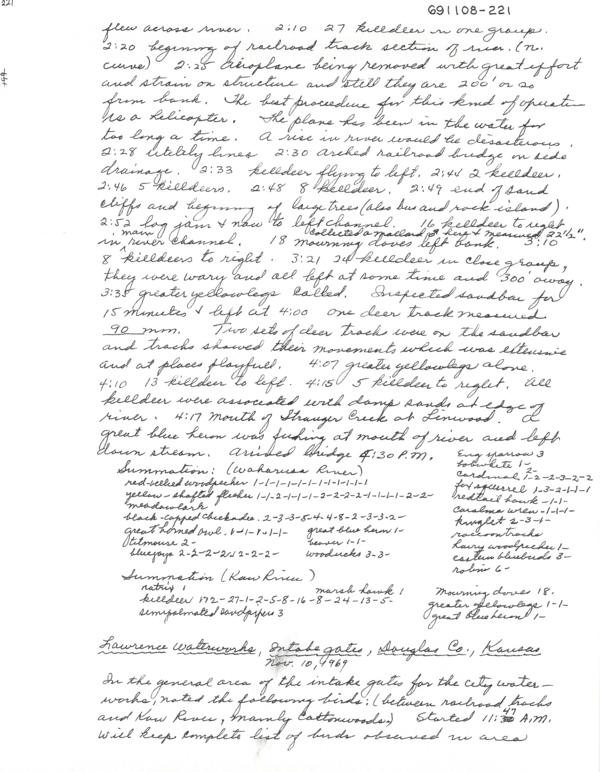 691108-221
221
flew across river. 2:10 27 killdeer in one group.
2:20 beginning of railroad track section of river. (n.
curve) 2:25 aeroplane being removed with great effort
and strain on structure and still they are 200' or so
from bank. The best proceedure for this kind of operation
is a helicopter. The plane has been in the water for
too long a time. A rise in river would be disasterous.
2:28 utility lines 2:30 arched railroad bridge on side
drainage. 2:33 killdeer flying to left. 2:44 2 killdeer.
2:46 5 killdeers. 2:48 8 killdeer. 2:49 end of sand
cliffs and beginning of large trees (also bus and rock island).
2:52 log jam & now to left channel. 16 killdeer to right
in main river channel. Collected a mallard ♂ here & measured 22½".
18 mourning doves left bank. 3:10
8 killdeers to right. 3:21 24 killdeer in close group,
they were wary and all left at same time and 300' away.
3:35 greater yellowlegs called. Inspected sandbar for
15 minutes & left at 4:00 one deer track measured
90 mm. Two sets of deer tracks were on the sandbar
and tracks showed their movements which was extensive
and at places playfull. 4:07 greater yellowlegs alone.
4:10 13 killdeer to left. 4:15 5 killdeer to right. All
killdeer were associated with damp sands at edge of
river. 4:17 mouth of Stranger Creek at Linwood. A
great blue heron was fishing at mouth of river and left
down stream. Arrived bridge 4:30 P.M.
Summation: (Wakarusa River)
red-bellied woodpecker 1-1-1-1-1-1-1-1-1-1
yellow-shafted flicker 1-1-2-1-1-1-2-2-2-1-1-1-1-2-2-
meadowlark
black-capped chickadee 2-3-3-5-4-4-8-2-3-3-2-
great horned owl 1-1-1-1-1-
titmouse 2-
bluejays 2-2-2-2-2-2-2-
great blue heron 1-
beaver 1-1-
woodducks 3-3-
Eng sparrow 3
bobwhite 1-
cardinal 1-2-2-3-2-2
fox squirrel 1-3-2-1-1-1
redtail hawk -1-1
carolina wren -1-1-1
kinglet 2-3-1-
raccoon tracks
hairy woodpecker 1-
eastern bluebirds 3-
robin 6-
Summation (Kaw River)
natrix 1
marsh hawk 1
killdeer 172-27-1-2-5-8-16-8-24-13-5-
semipalmated sandpipers 3
mourning doves 18.
greater yellowlegs 1-1-
great blue heron 1-
Lawrence Waterworks, Intake gates, Douglas Co., Kansas
Nov. 10, 1969
In the general area of the intake gates for the city water-
works, noted the following birds: (between railroad tracks
and Kaw River, mainly Cottonwoods) Started 11:47 A.M.
Will keep complete list of birds observed in area